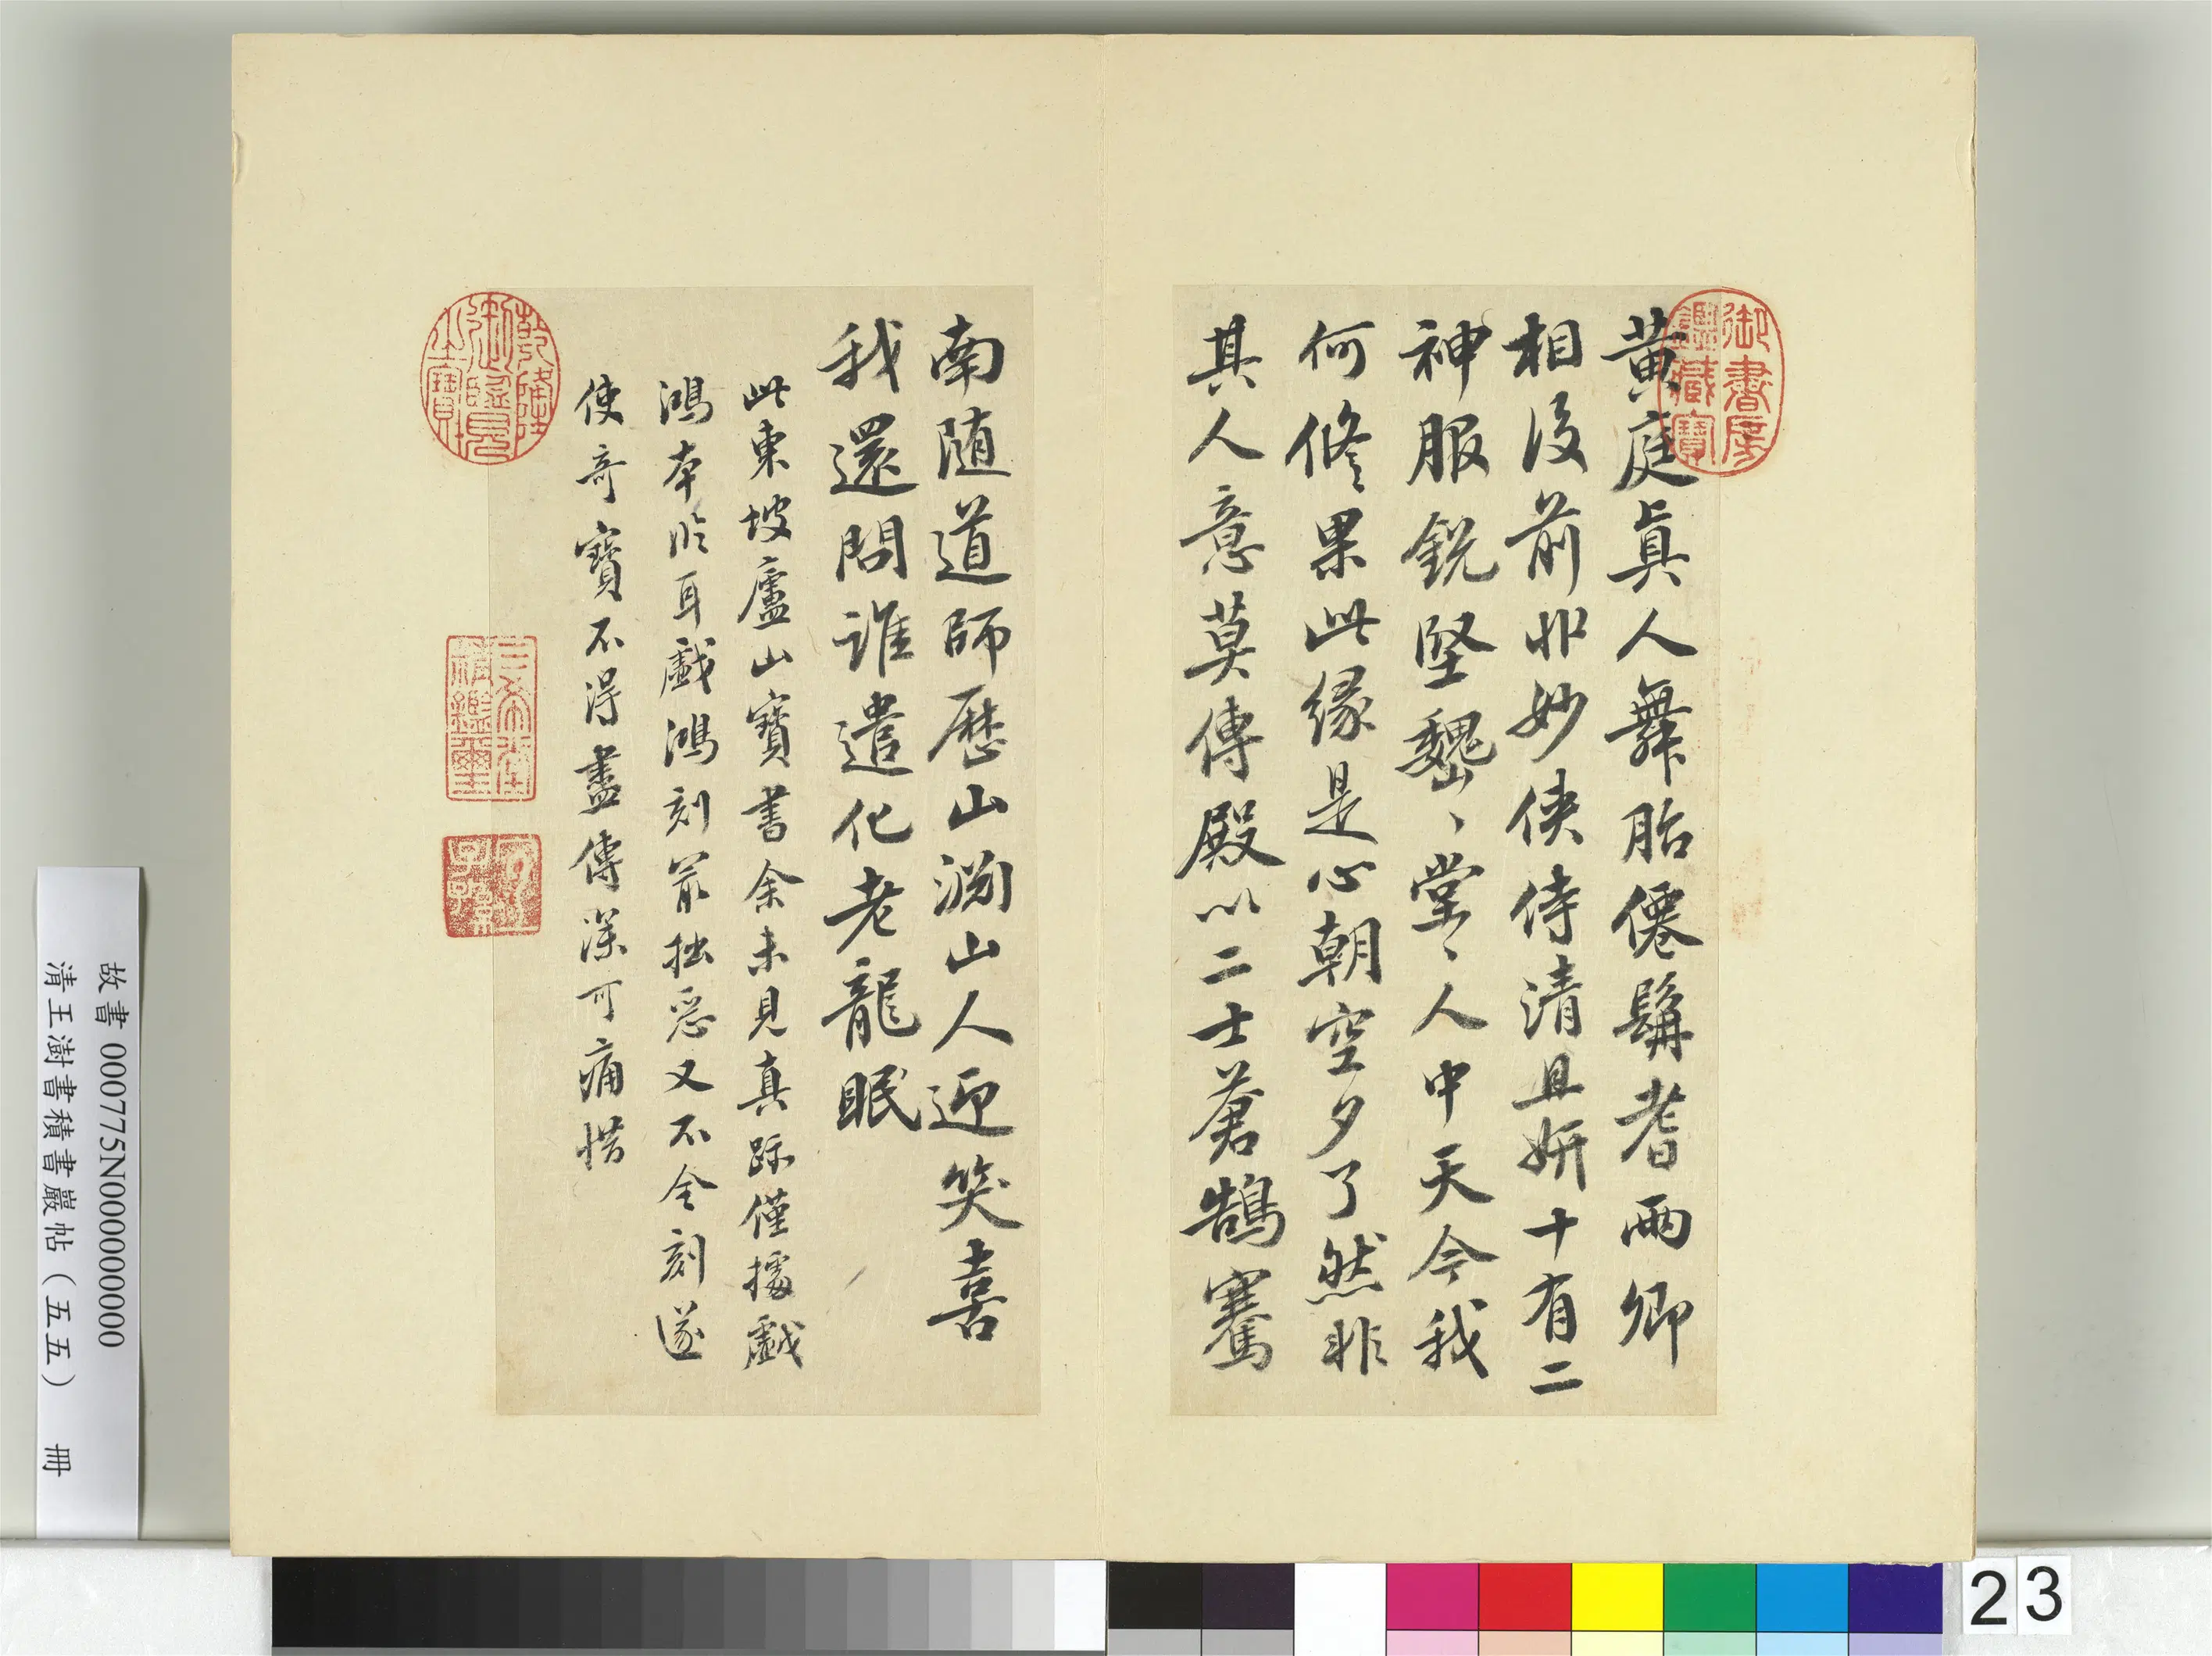 黃庭真人舞胎僊鬅耆兩卿
相後前丱妙俠侍清且妍十有二
神服銳堅巍〻堂〻人中天今我
何修果此緣是心朝空夕了然非
其人意莫傳殿以二士蒼鵠騫
南隨道師歷山淵山人迎笑喜
我還問誰遣化老龍眠
此東坡廬山寶書余未見真跡僅據戲
鴻本臨耳戲鴻刻最拙惡又不全刻遂
使奇寶不得盡傳深可痛惜
御書房
鑑藏寶
乾隆
御覽
之寶
三希堂
精鑑璽
宜
子孫
故書 000775N000000000
清王澍書積書巖帖（五五） 冊
23